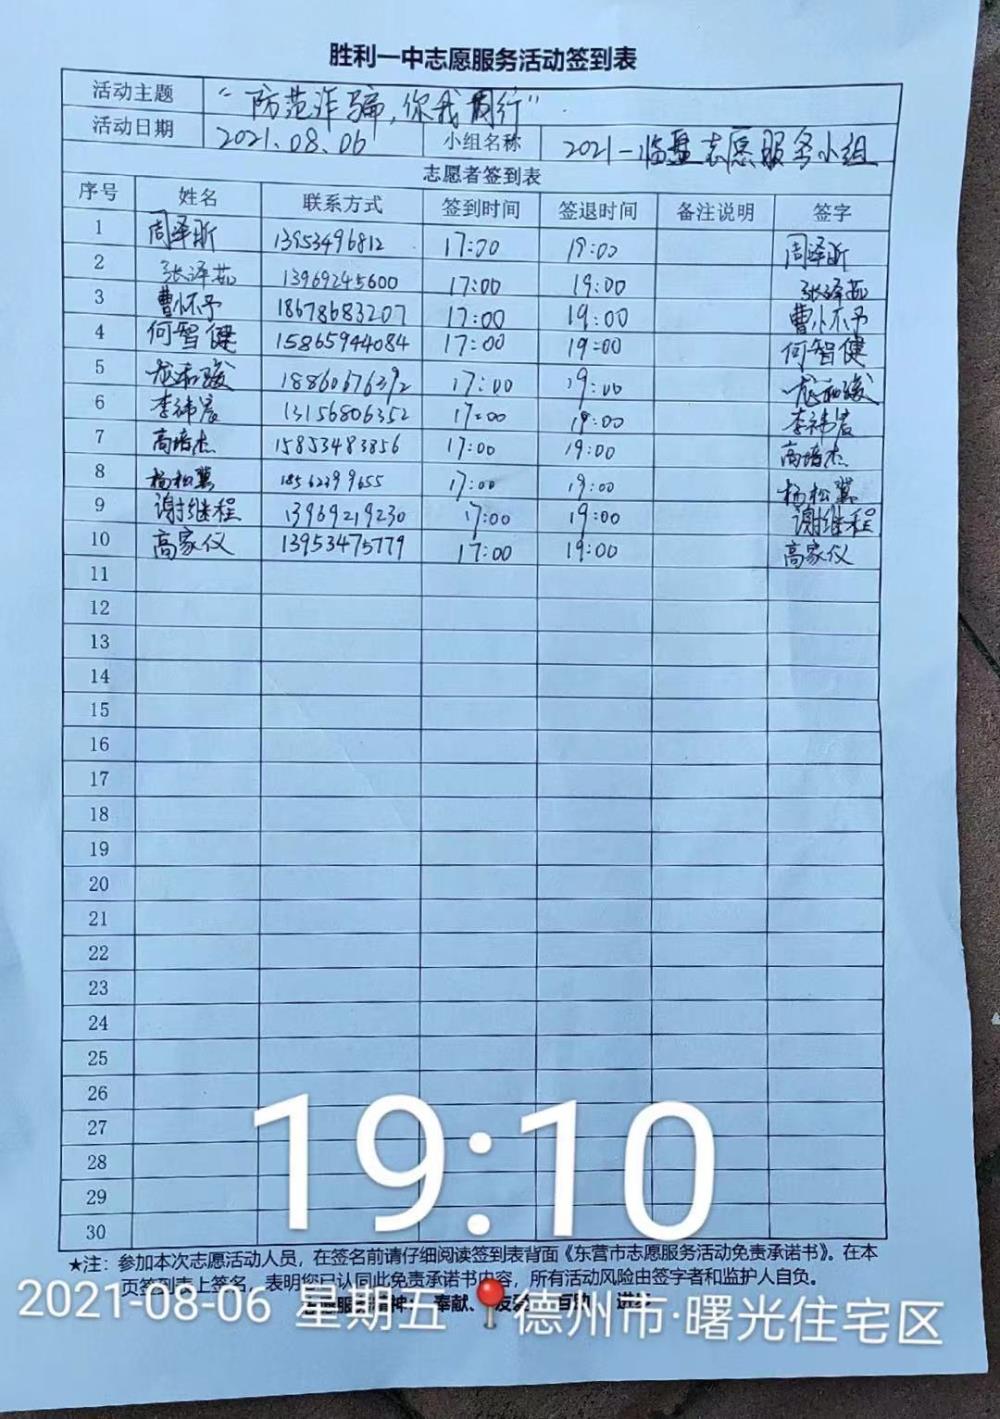 胜利一中志愿服务活动签到表
活动主题 “防范诈骗,你我同行”
活动日期 2021.08.06 小组名称 2021-临盘志愿服务小组
志愿者签到表
序号 姓名 联系方式 签到时间 签退时间 备注说明 签字
1 周泽昕 13953496812 17:00 19:00 周泽昕
2 张泽茹 13969245600 17:00 19:00 张泽茹
3 曹怀予 18678683207 17:00 19:00 曹怀予
4 何智健 15865944084 17:00 19:00 何智健
5 龙和骏 18860676392 17:00 19:00 龙和骏
6 李祎宸 13156806352 17:00 19:00 李祎宸
7 高培杰 15853483856 17:00 19:00 高培杰
8 杨松冀 18562399655 17:00 19:00 杨松冀
9 谢继程 13969219230 17:00 19:00 谢继程
10 高家仪 13953475779 17:00 19:00 高家仪
11
12
13
14
15
16
17
18
19
20
21
22
23
24
25
26
27
28
29
30
19:10
★注：参加本次志愿活动人员，在签名前请仔细阅读签到表背面《东营市志愿服务活动免责承诺书》。在本
页签到表上签名，表明您已认同此免责承诺书内容，所有活动风险由签字者和监护人自负。
志愿服务精神 奉献、友爱 互助 进步
2021-08-06 星期五 德州市·曙光住宅区